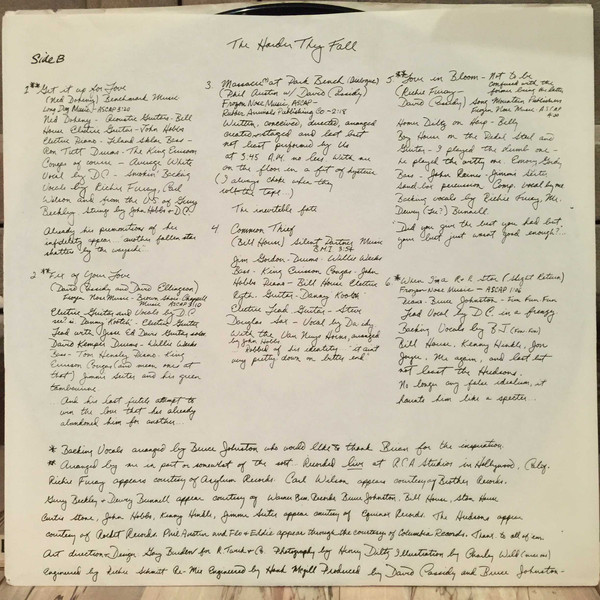 The Harder They Fall
Side B
1 ** Get it up for Love
(Ned Doheny) Benchmark Music
Long Dog Music - ASCAP 3:20
Ned Doheny - Acoustic Guitars - Bill
House Electric Guitars - John Hobbs
Electric Piano - Leland Sklar Bass -
Ron Tutt Drums - The King Errisson
Congas of course - Average White
Vocal by D.C. - Smokin' Backing
Vocals by Richie Furay, Carl
Wilson and from the U.S of Gerry
Beckley. Strings by John Hobbs & D.C.
Already his premonition of her
infidelity appear "another fallen star
shatter by the wayside"
2 ** Fit of Your Love
(David Cassidy and David Ellingson)
Frozen Nose Music - Brown Shoes Chappell
Music ASCAP 3:10
Electric Guitar and Vocals by D.C.
Danny Kootch - Electric Guitar
David Kemper Drums - Willie Weeks
Bass - Tom Hensley Piano - King
Errisson Congas (and mean ones at
that) Jimmie Seiter and his green
tambourine
And his last futile attempt to
win the love that has already
abandoned him for another...
3 Massacre at Park Bench (Dialogue)
(Phil Austin w/ David Cassidy)
Frozen Nose Music, ASCAP -
Publishing Co - 2:18
Written, conceived, directed, arranged
created and last but
not least performed by us
at 3:45 A.M. no less with me
on the floor in a fit of hysteria
(I always choke when they
roll the tape...)
The inevitable fate
4 Common Thief
(Bill House) Silent Partner Music
BMI 3:54
Jim Gordon - Drums - Willie Weeks
Bass - King Errisson Congas - John
Hobbs Piano - Bill House Electric
Guitar - Danny Kootch
Electric Lead Guitar - Steve
Douglas Sax - Vocal by Da vidy
with the Van Nuys Horns, arranged
by John Hobbs
Robbed of his identity "it ain't
very pretty down on bitter end"
5 ** Love in Bloom - Not to be
confused with the
former being the latter
(Richie Furay -
David Cassidy) Song Mountain Publishers
Frozen Nose Music ASCAP
Home Dilty on Harp - Billy
Boy House on the Pedal Steel and
Guitar - I played the dumb one -
he played the witty one. Emory Gordy
Bass - John Raines - Jimmie Seiter
sand box percussion Comp. Vocal by me
Backing vocals by Richie Furay, Mr.
Dewey (Lu?) Bunnell
"Did you give the best you had but,
your best just wasn't good enough?"...
6 * When I'm a R n R Star (Slight Return)
Frozen Nose Music - ASCAP
Piano - Bruce Johnston - Fun Fun Fun
Lead Vocal by D.C. in a frenzy
Backing Vocals by B.J. (Fun Fun)
Bill House, Kenny Hinkle, Jon
Joyce, Me again, and last but
not least the Hudsons.
No longer any false idealism, it
haunts him like a specter...
* Backing Vocals arranged by Bruce Johnston who would like to thank Brian for the inspiration.
** Arranged by me in part or somewhat of the sort - Recorded live at R.C.A Studios in Hollywood, Calif.
Richie Furay appears courtesy of Asylum Records. Carl Wilson appears courtesy of Brother Records.
Gerry Beckley & Dewey Bunnell appear courtesy of Warner Bros. Records Bruce Johnston, Bill House, Stan House
Curtis Stone, John Hobbs, Kenny Hinkle, Jimmie Seiter appear courtesy of Equinox Records. The Hudsons appear
courtesy of Rocket Records Phil Austin and Flo & Eddie appear through the courtesy of Columbia Records. Thanx to all of em
Art direction & Design Gary Burden for R. Twerk & Co. Photography by Henry Diltz Illustration by Charley Wild (wee me)
Engineered by Richie Schmitt Re-Mix Engineered by Hank Produced by David Cassidy and Bruce Johnston -